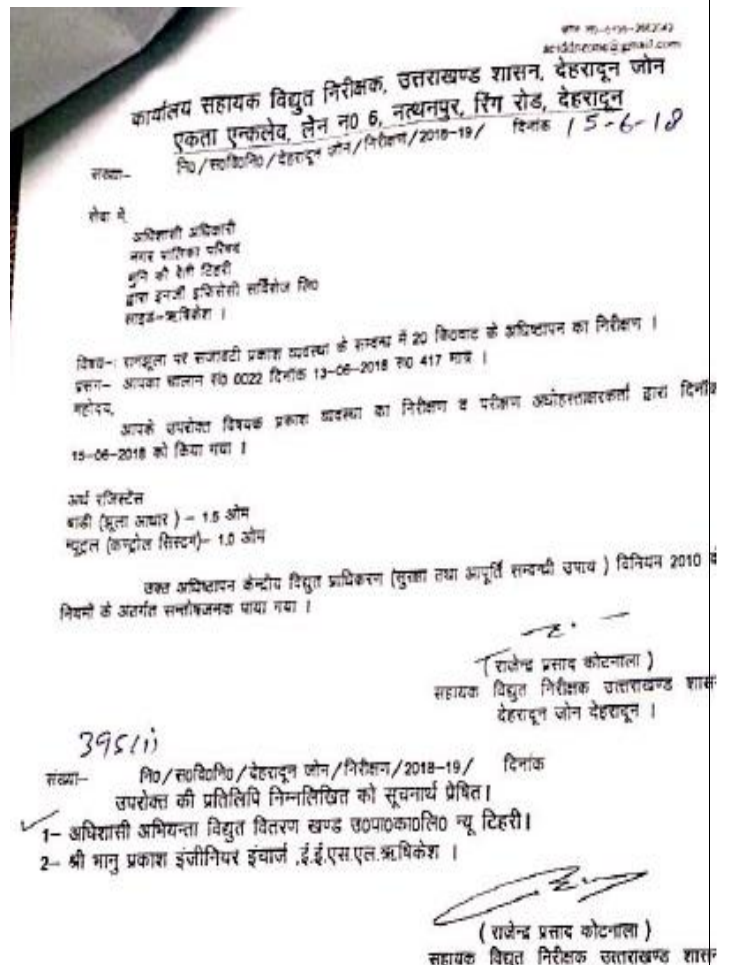 aeiddnzone@gmail.com
कार्यालय सहायक विद्युत निरीक्षक, उत्तराखण्ड शासन, देहरादून जोन
एकता एन्कलेव, लेन न0 6, नत्थनपुर, रिंग रोड, देहरादून
संख्या- नि0/स0वि0नि0/देहरादून जोन/निरीक्षण/2018-19/ दिनांक 15-6-18
सेवा में
अधिशासी अधिकारी
नगर पालिका परिषद
मुनि की रेती टिहरी
द्वारा इनर्जी इफिसेंसी सर्विसेज लि0
साइड-ऋषिकेश ।
विषय-: रामझूला पर सजावटी प्रकाश व्यवस्था के सम्बन्ध में 20 कि0वाट के अधिष्टापन का निरीक्षण ।
प्रसंग- आपका चालान सं0 0022 दिनांक 13-06-2018 रू0 417 मात्र ।
महोदय,
आपके उपरोक्त विषयक प्रकाश व्यवस्था का निरीक्षण व परीक्षण अधोहस्ताक्षरकर्ता द्वारा दिनाँक
15-06-2018 को किया गया ।
अर्थ रजिस्टेंस
बाडी (झूला आधार ) – 1.5 ओम
न्यूट्रल (कण्ट्रोल सिस्टम)– 1.0 ओम
उक्त अधिष्टापन केन्द्रीय विद्युत प्राधिकरण (सुरक्षा तथा आपूर्ति सम्बन्धी उपाय ) विनियम 2010
नियमों के अंतर्गत सन्तोषजनक पाया गया ।
( राजेन्द्र प्रसाद कोटनाला )
सहायक विद्युत निरीक्षक उत्तराखण्ड शासन
देहरादून जोन देहरादून ।
395(1)
संख्या- नि0/स0वि0नि0/देहरादून जोन/निरीक्षण/2018-19/ दिनांक
उपरोक्त की प्रतिलिपि निम्नलिखित को सूचनार्थ प्रेषित।
1- अधिशासी अभियन्ता विद्युत वितरण खण्ड उ0पा0का0लि0 न्यू टिहरी।
2- श्री भानु प्रकाश इंजीनियर इंचार्ज ,ई.ई.एस.एल.ऋषिकेश ।
( राजेन्द्र प्रसाद कोटनाला )
सहायक विद्युत निरीक्षक उत्तराखण्ड शासन